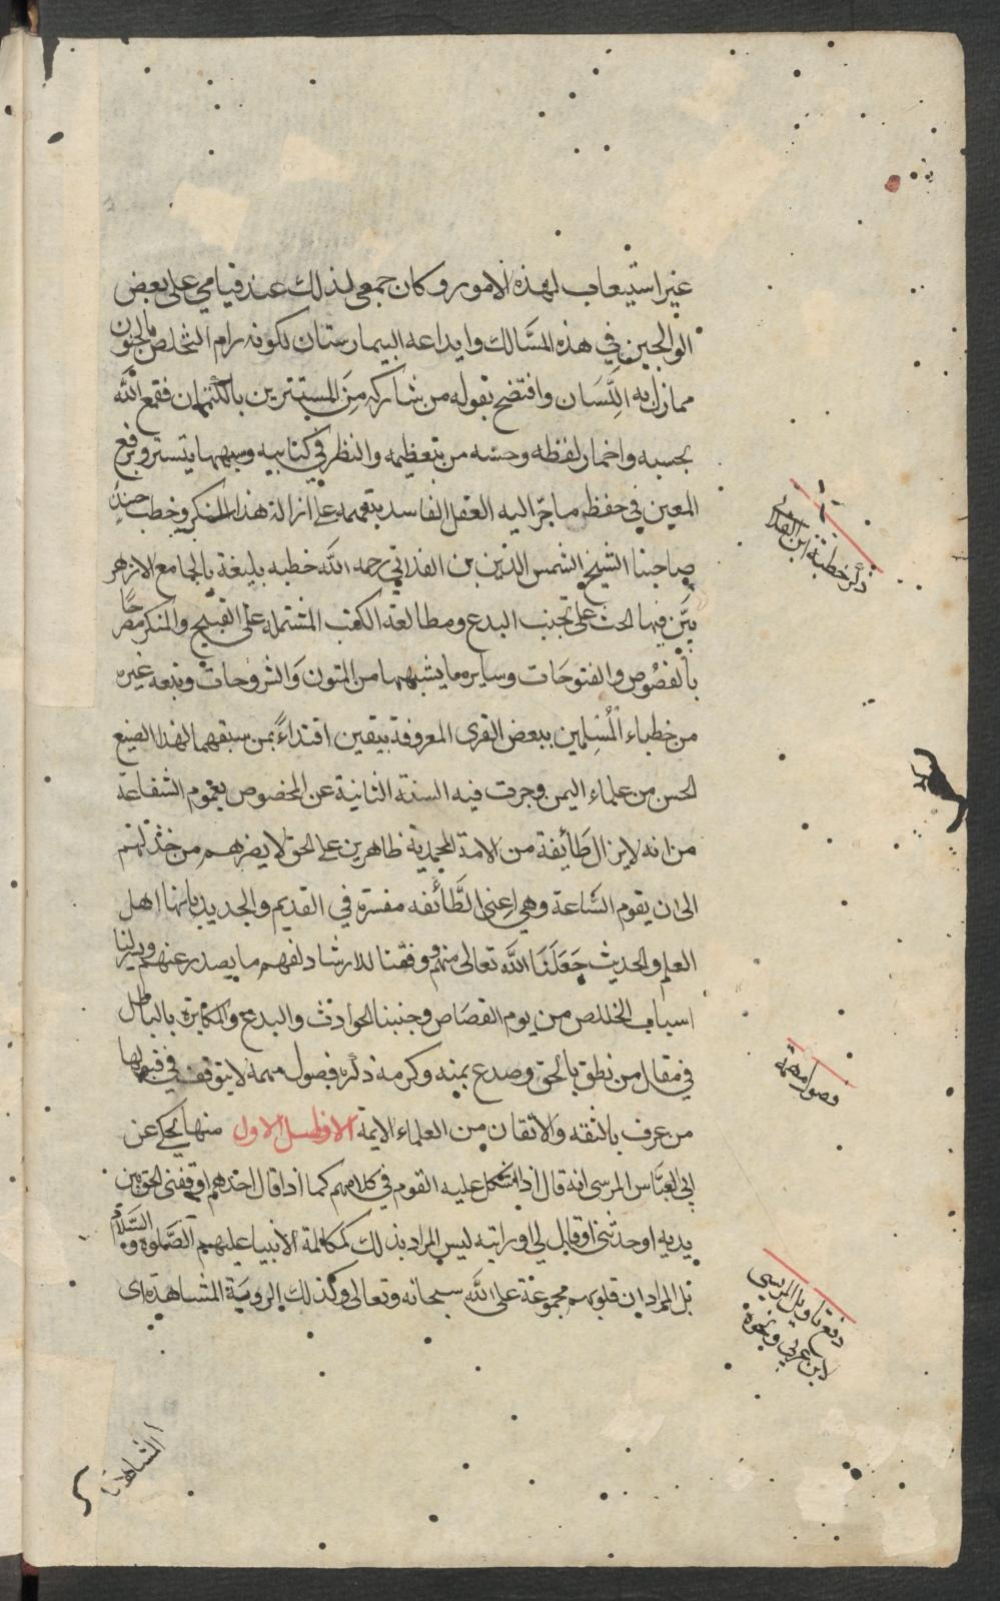 غير استيعاب لهذه الامور وكان جمعى لذلك عند قيامي على بعض
الوالجين في هذه المسَّالك وايداعه البيمارستان لكونه رام التخلص بالجنون
مما زل به اللِّسَان وافتضح بقوله من شاركه مِنَ المستترين بالكتمان فقمع الله
بحبسه واخمار لفظه وحسه من بتعظيمه والنظر في كتابيه وسبهها يتستر وبرفع
المعين في حفظ ماجرّ اليه العقل الفاسد بتعميمه على ازالة هذا المنكر وخطب حينئذٍ
صاحبنا الشيخ الشمس الدين بن الفداني رحمه الله خطبه بليغة بالجامع الازهر
بيَّن فيها الحث على تجنب البدع ومطالعة الكتب المشتمله على القبيح والمنكر مصرحًا
بالفصُوص والفتوحَات وسايره ما يشبهها من المتون وَالشروحات وتبعه غيره
من خطباء المُسْلِمين ببعض القرى المعروفة بيقين اقتداءً بمن سبقهما لهذا الصنيع
الحسن من علماء اليمن وجرت فيه السنة الثانية عن المخصوص بعموم الشفاعة
من انه لا يزال طَائفة من الامة المحمدية ظاهرين على الحق لا يضرهم من خذلهم
الى ان يقوم السَّاعة وهي اعني الطَّائفه مفسرة في القديم والجديد بانها اهل
العلم والحديث جَعَلَنَا الله تعالى منهم ووفقنا للارشاد لفهم ما يصدر عنهم ويسر لنا
اسباب الخلاص من يوم القصَاص وجنبنا الحوادث والبدع والمكابرة بالباطل
في مقال من نطق بالحق وصدع بمنه وكرمه ذكر فصول مهمة لا يتوقف في قبولها
من عرف بالثقه والاتقان من العلماء الايمة الفصل الاول منها يحكي عن
ابى العبَّاس المرسى انه قال اذا اشكل عليه القوم في كلامهم كما اذا قال احدهم اوقفنى الحق بين
يديه او حدثنى او قال لي او رايته ليس المراد بذلك كمكالمة الانبياء عليهم الصَّلوة والسَّلام
بل المراد ان قلوبهم مجموعة على الله سبحانه وتعالى وكذلك الروية المشاهدة اى
ذكر خطبة ابن الفداني
فصول مهمة
دفع تاويل المرسى
لابن عربي ونحوه
المشاهدة